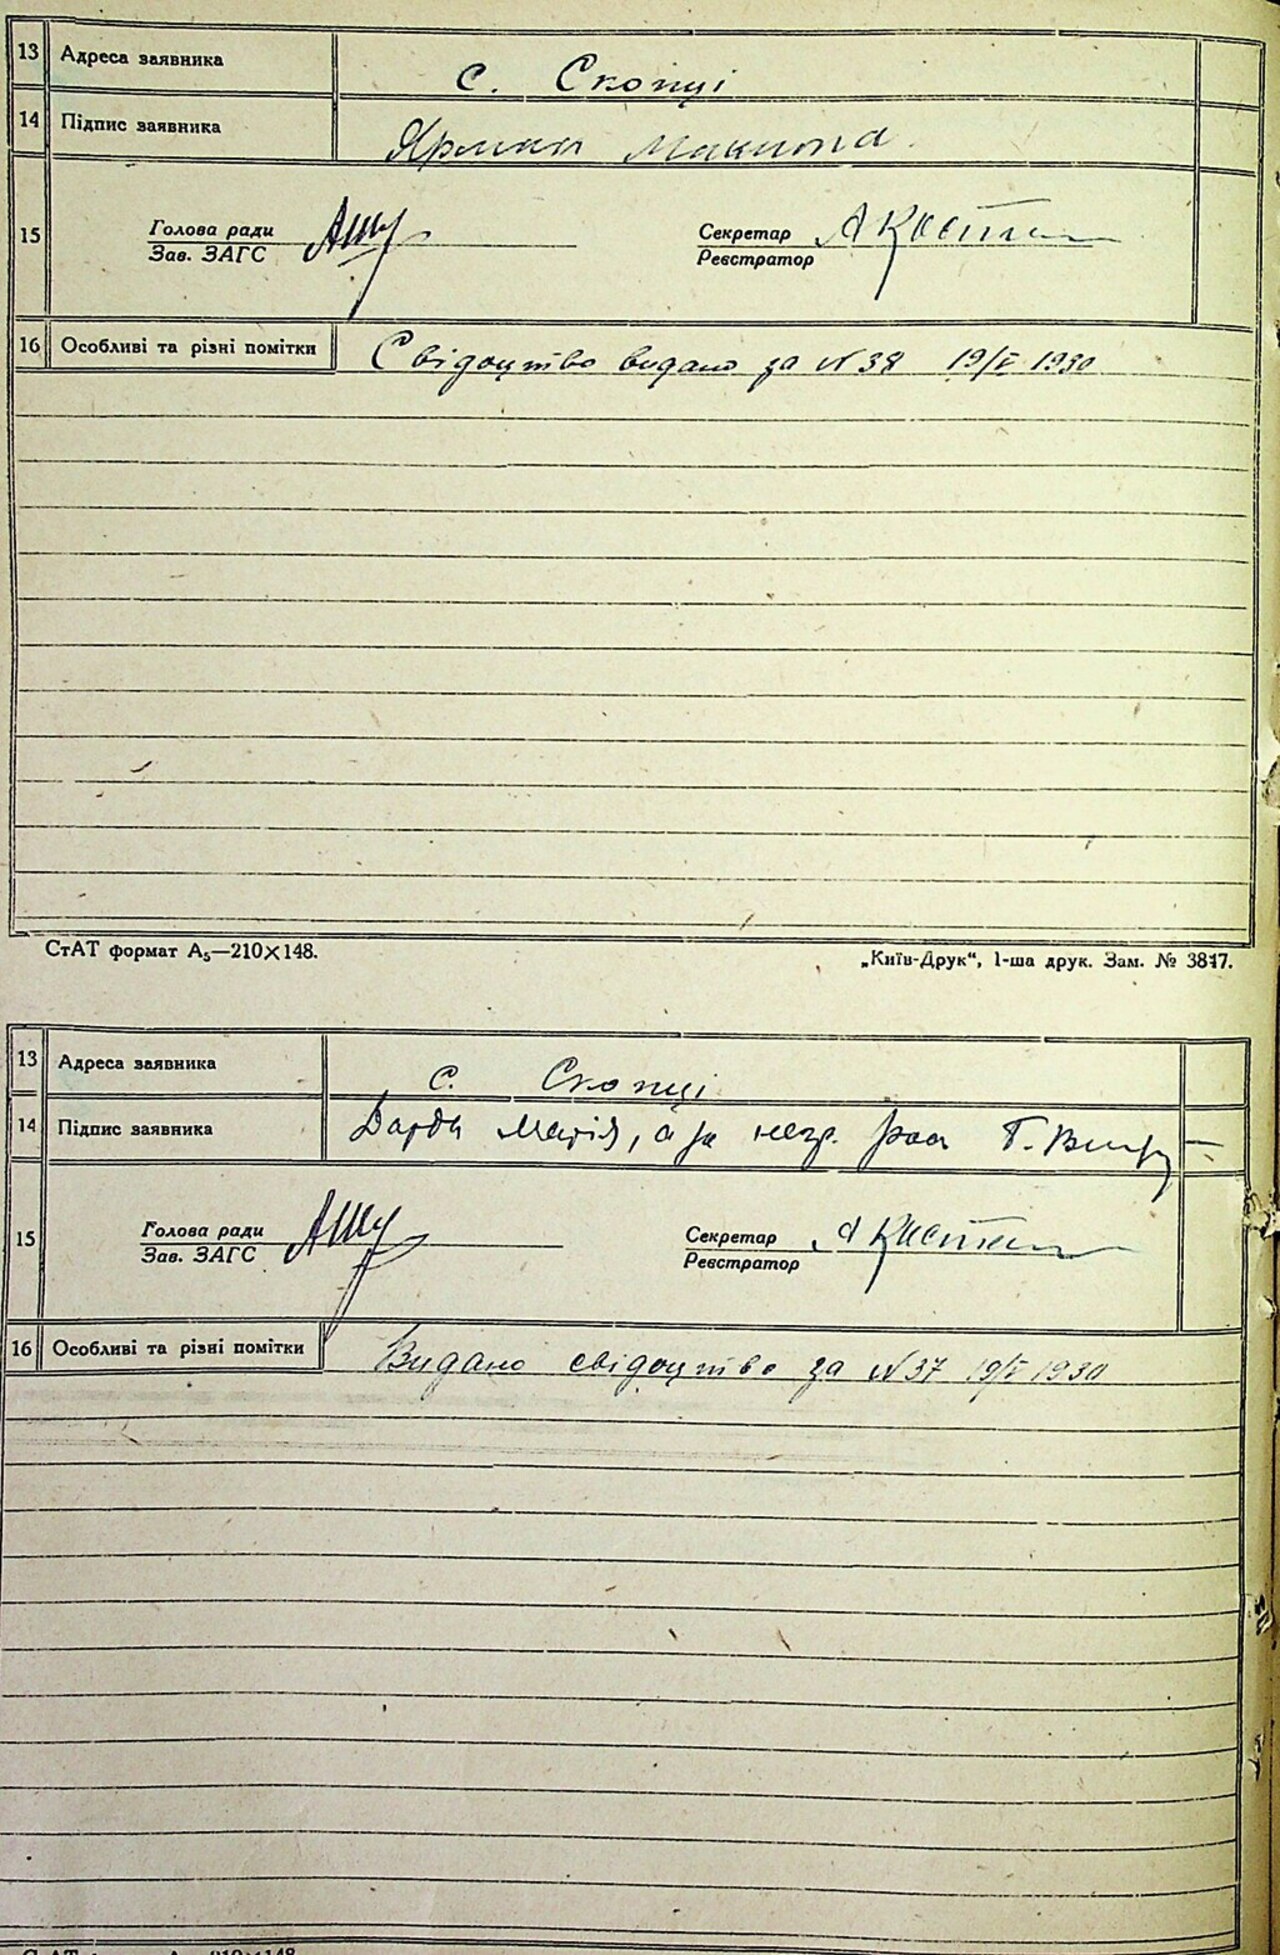 13 Адреса заявника с. Скопці
14 Підпис заявника
15 Голова ради Секретар
Зав. ЗАГС Реєстратор
16 Особливі та різні помітки Свідоцтво видано за N 38 19/V 1930
СтАТ формат А₅—210×148. „Київ-Друк“, 1-ша друк. Зам. № 3847.
13 Адреса заявника с. Скопці
14 Підпис заявника Дарда Марія, а за негр.
15 Голова ради Секретар
Зав. ЗАГС Реєстратор
16 Особливі та різні помітки Видано свідоцтво за N 37 19/V 1930